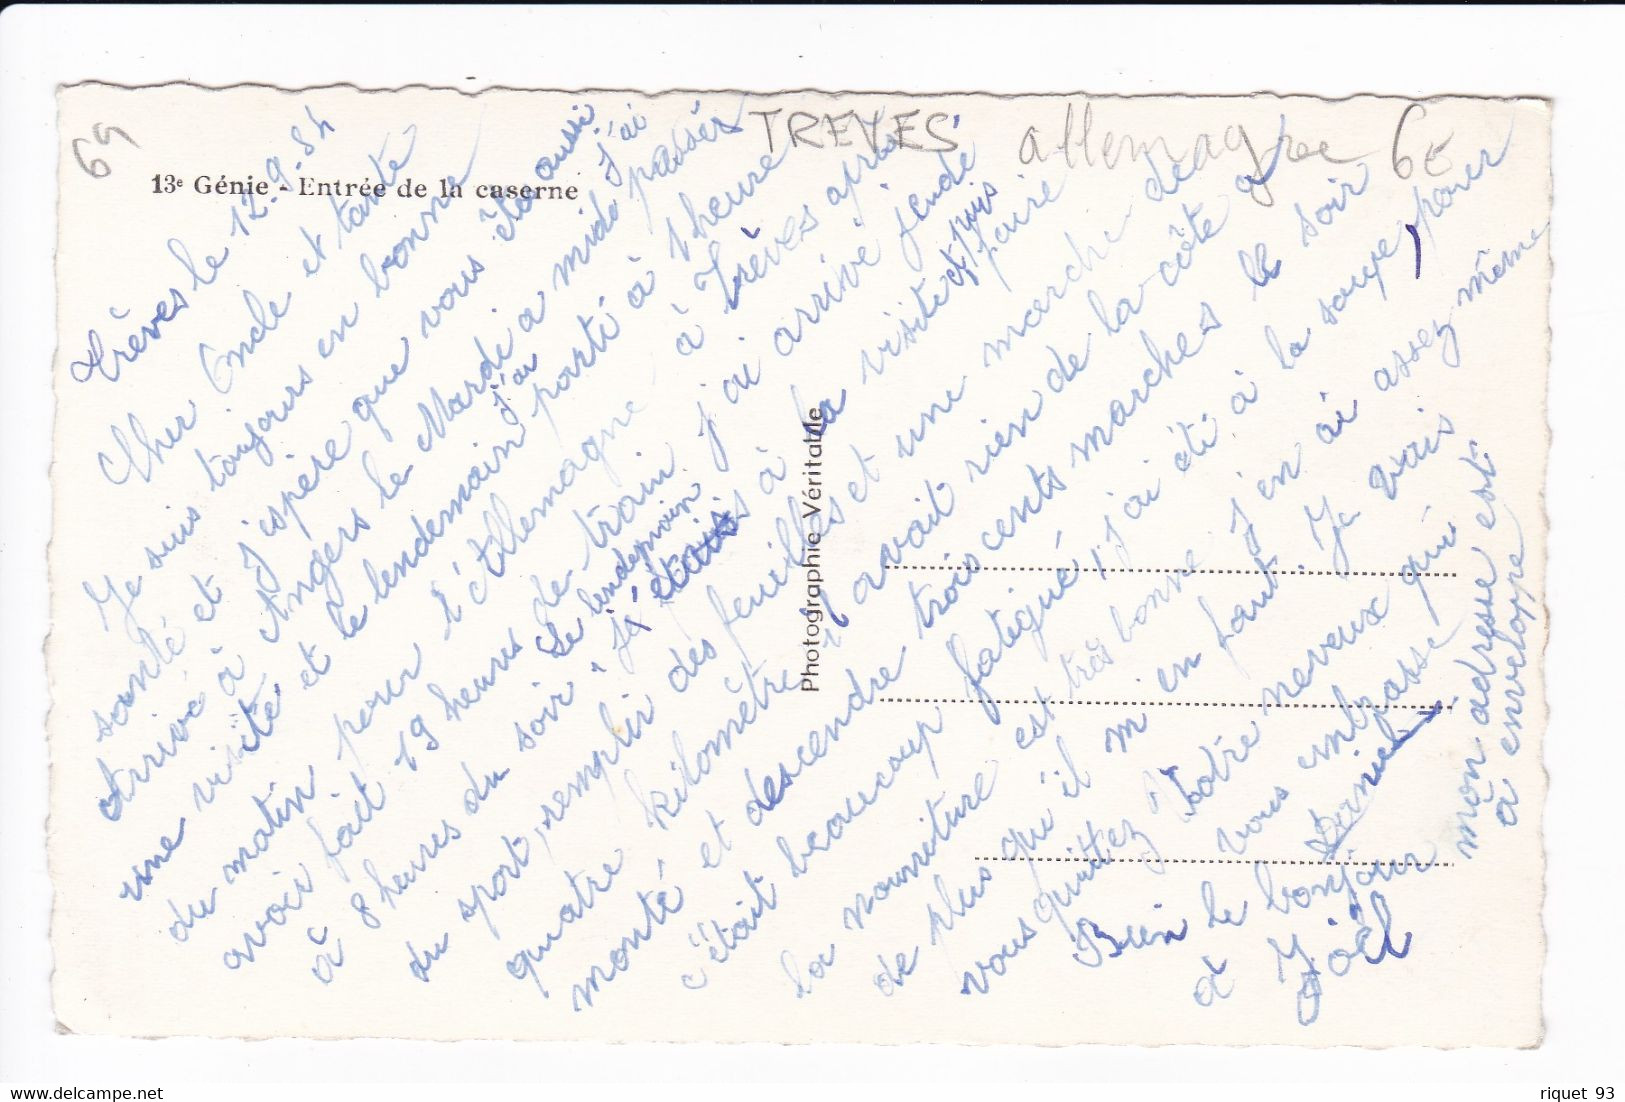 69
TREVES allemagne 6€
13e Génie - Entrée de la caserne
Photographie Véritable
Trèves le 12-9-54
Cher Oncle et tante
Je suis toujours en bonne
santé et j'espère que vous êtes aussi
Arrivé à Angers le Mardi a midi j'ai passer
une visite et le lendemain j'ai porté à 1 heure
du matin pour l'Allemagne à Trèves après
avoir fait 19 heures de train j'ai arrivé jeudi
à 8 heures du soir. Le lendemain je à la visite et puis faire
du sport, remplir des feuilles et une marche de
quatre kilomètre il avait rien de la côte a
monté et descendre trois cents marches le soir
c'était beaucoup fatigué, j'ai été à la soupe, pour
la nourriture est très bonne j'en ai assez même
de plus qu'il m'en faut. Je vais
vous quittez Votre neveux qui
vous embrasse
Daniel
Bien le bonjour
à Joël
mon adresse est
à enveloppe
riquet 93